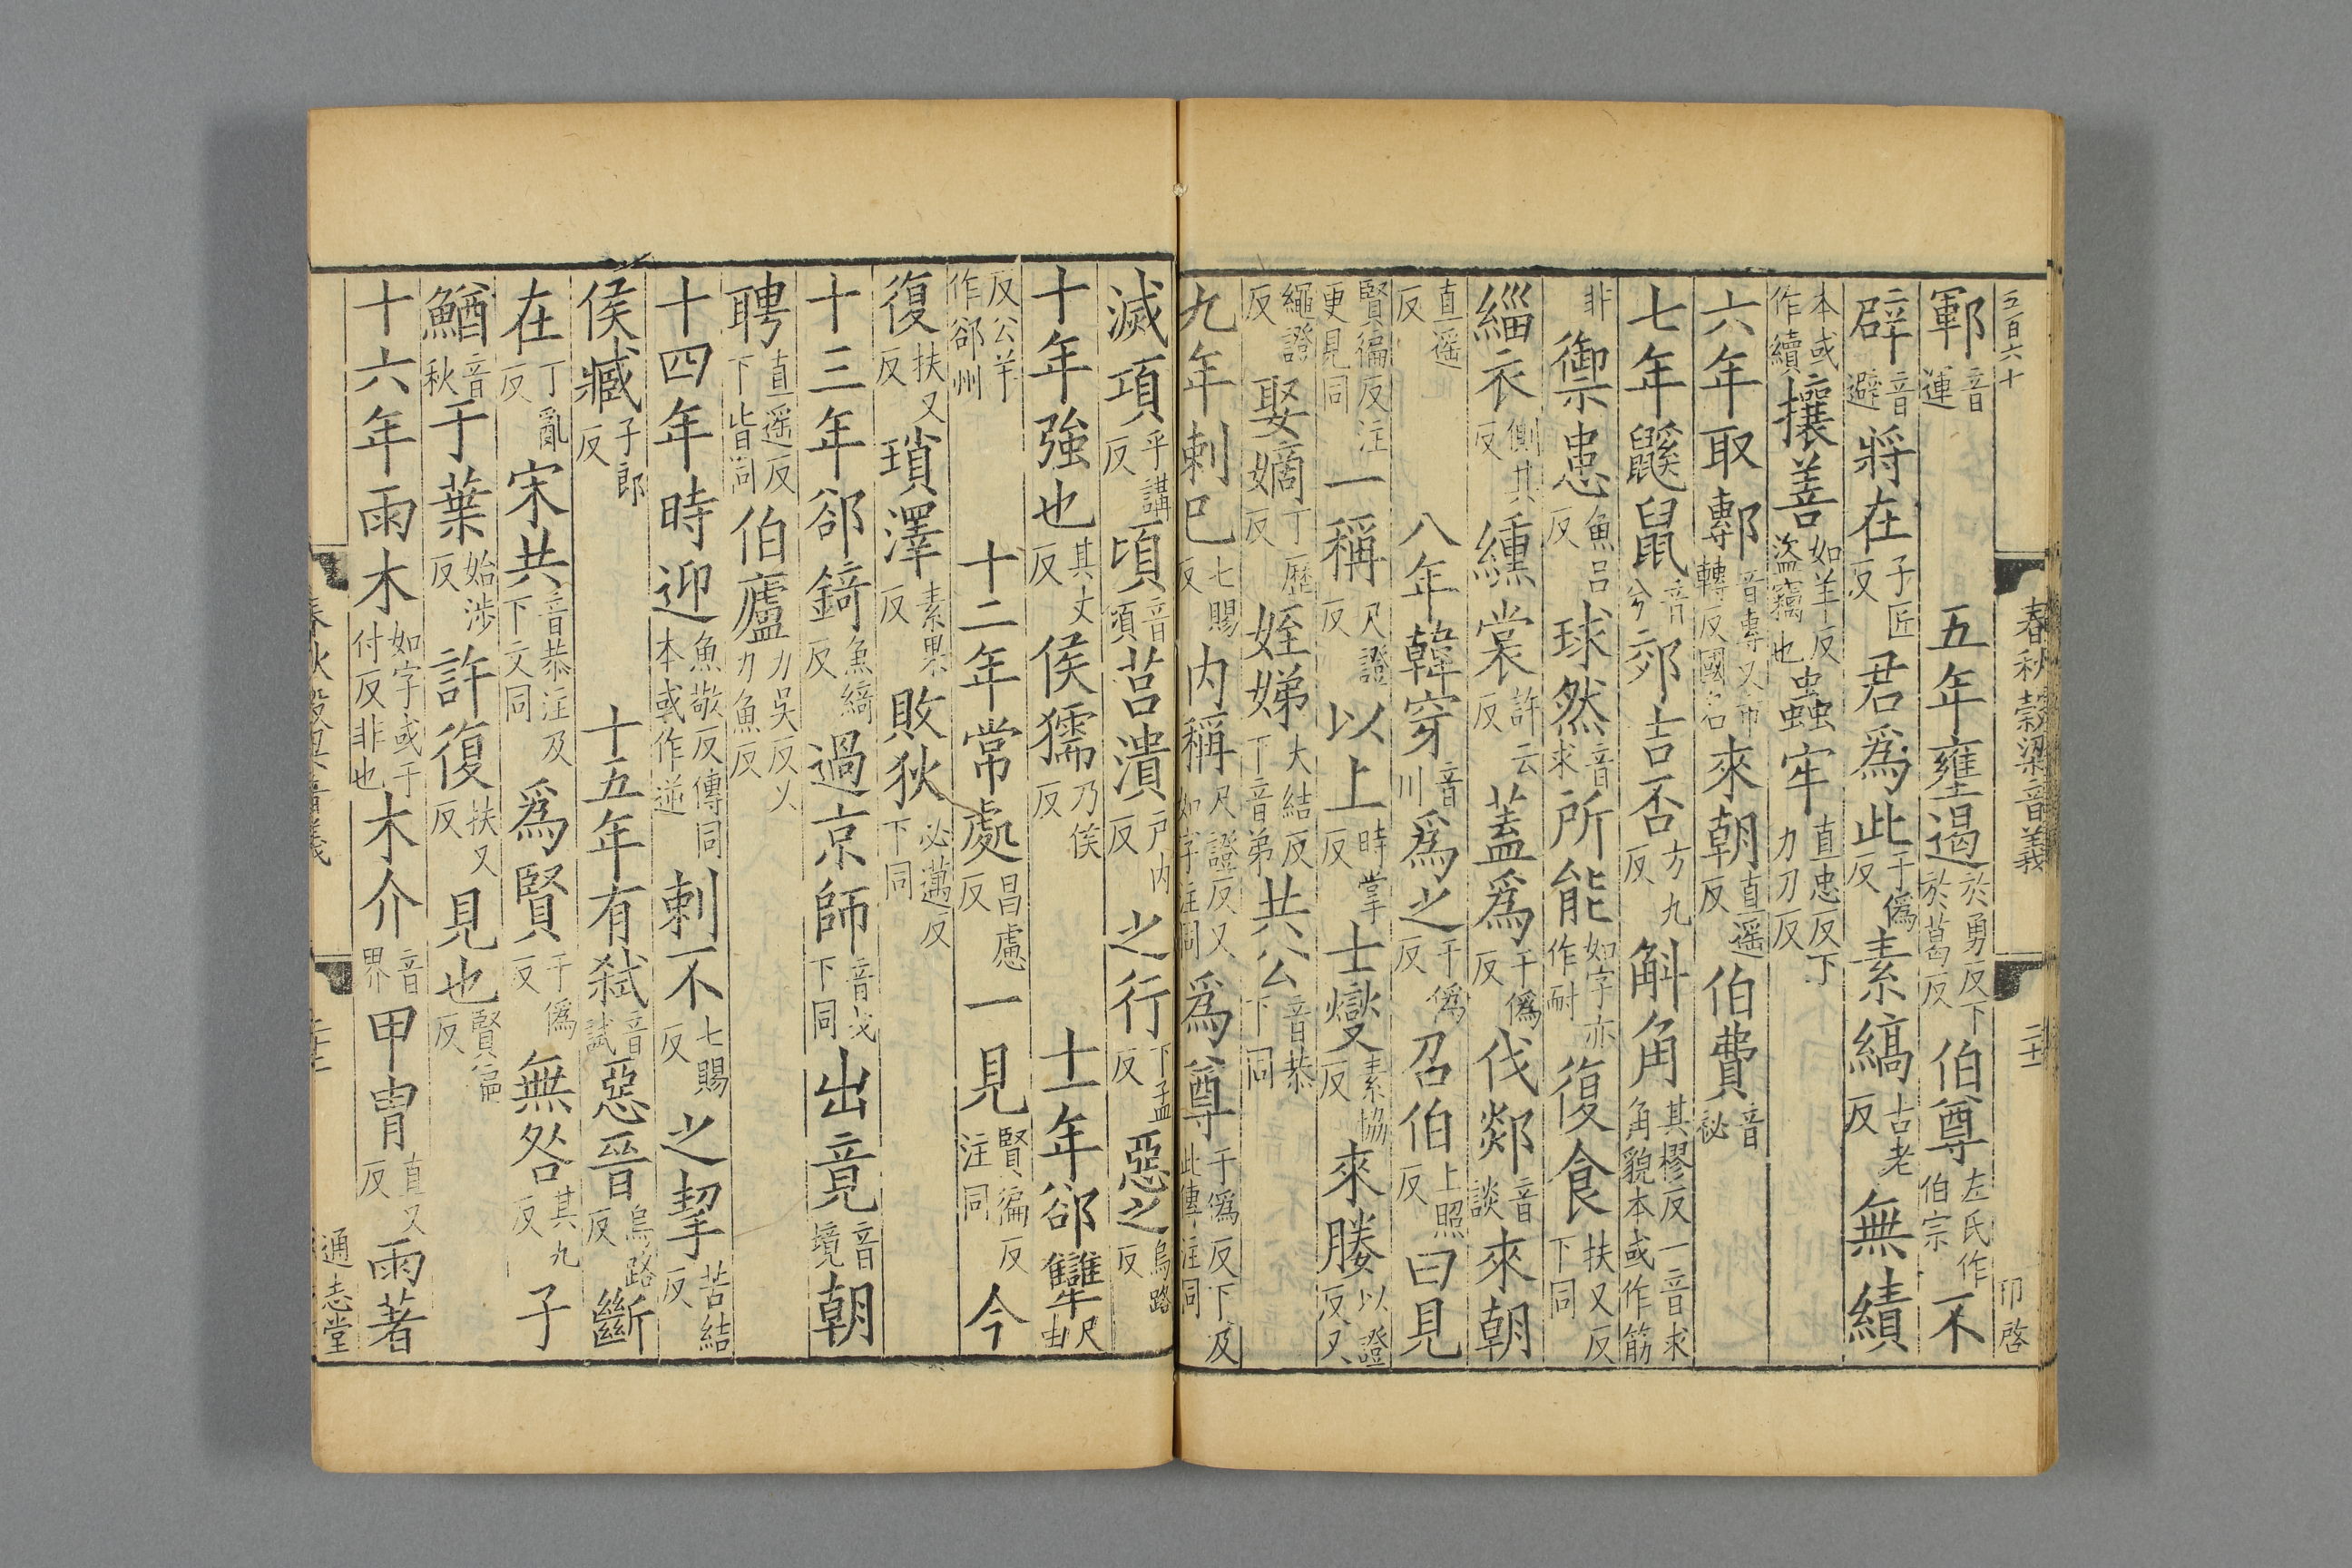 五百六十 春秋穀梁音義 二十一 卬啓
鄆音運 五年壅遏於勇反下於葛反 伯尊左氏作伯宗 不
辟音避 將在子匠反 君爲此于僞反 素縞古老反 無績
本或作續 攘善如羊反盜竊也 蟲牢直忠反下力刀反
六年取鄟音專又市轉反國名 來朝直遥反 伯費音祕
七年鼷鼠音兮 郊吉否方九反 斛角其樛反一音求角貌本或作筋
非 御患魚呂反 球然音求 所能如字亦作耐 復食扶又反下同
緇衣側其反 纁裳許云反 蓋爲于僞反 伐郯音談 來朝
直遥反 八年韓穿音川 爲之于僞反 召伯上照反 曰見
賢徧反注更見同 一稱尺證反 以上時掌反 士燮素協反 來媵以證反又
繩證反 娶嫡丁歷反 姪娣大結反下音弟 共公音恭下同
九年刺巳七賜反 内稱尺證反又如字注同 爲尊于僞反下及此傳注同
滅項乎講反 頃音傾 莒潰戸内反 之行下孟反 惡之烏路反
十年強也其丈反 侯獳乃侯反 十一年郤犨尺由
反公羊作郤州 十二年常處昌慮反 一見賢徧反注同 今
復扶又反 瑣澤素果反 敗狄必邁反下同
十三年郤錡魚綺反 過京師音戈下同 出竟音境 朝
聘直遥反下皆同 伯廬力吳反又力魚反
十四年時迎魚敬反傳同本或作逆 刺不七賜反 之挈苦結反
侯臧子郎反 十五年有弑音試 惡晉烏路反 斷
在丁亂反 宋共音恭注及下文同 爲賢于僞反 無咎其九反 子
鰌音秋 于葉始涉反 許復扶又反 見也賢徧反
十六年雨木如字或于付反非也 木介音界 甲冑直又反 雨著
春秋穀梁音義 二十一 通志堂